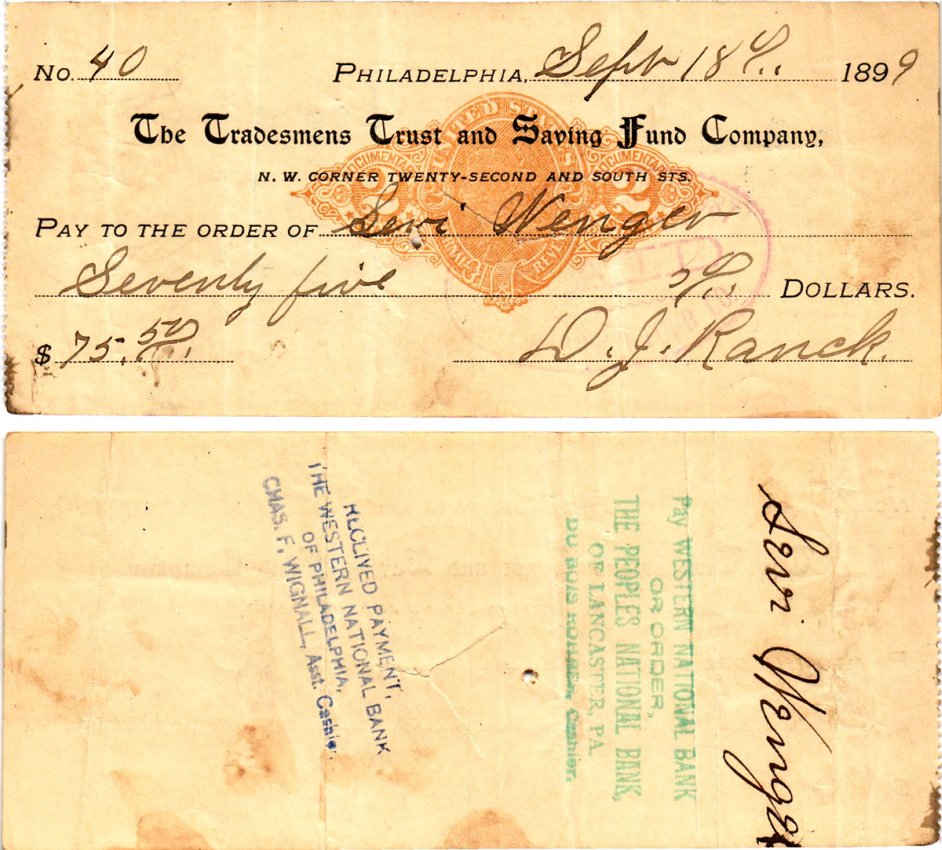 No. 40 PHILADELPHIA, Sept 18th 1899
The Tradesmens Trust and Saving Fund Company,
N. W. CORNER TWENTY-SECOND AND SOUTH STS.
PAY TO THE ORDER OF Levi Wenger
Seventy five DOLLARS.
$ 75.50 D. J. Ranck.
UNITED STATES
DOCUMENTARY
2
DOCUMENTARY
2
RECEIVED PAYMENT,
THE WESTERN NATIONAL BANK
OF PHILADELPHIA,
CHAS. F. WIGNALL, Asst. Cashier.
Pay WESTERN NATIONAL BANK
OR ORDER,
THE PEOPLES NATIONAL BANK,
OF LANCASTER, PA.
DU BOIS ROHRER, Cashier.
Levi Wenger